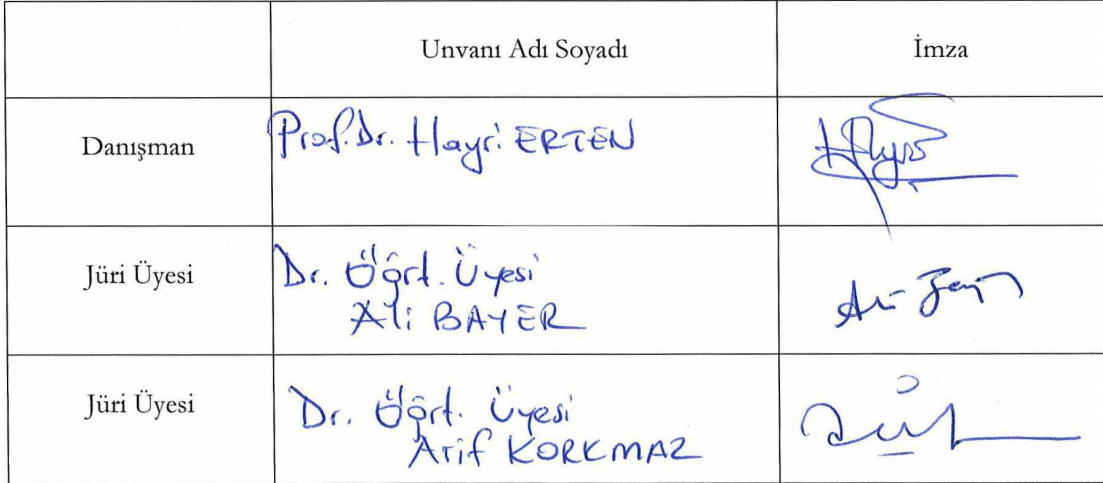 Unvanı Adı Soyadı İmza
Danışman Prof. Dr. Hayri ERTEN
Jüri Üyesi Dr. Öğrt. Üyesi
Ali BAYER
Jüri Üyesi Dr. Öğrt. Üyesi
Arif KORKMAZ